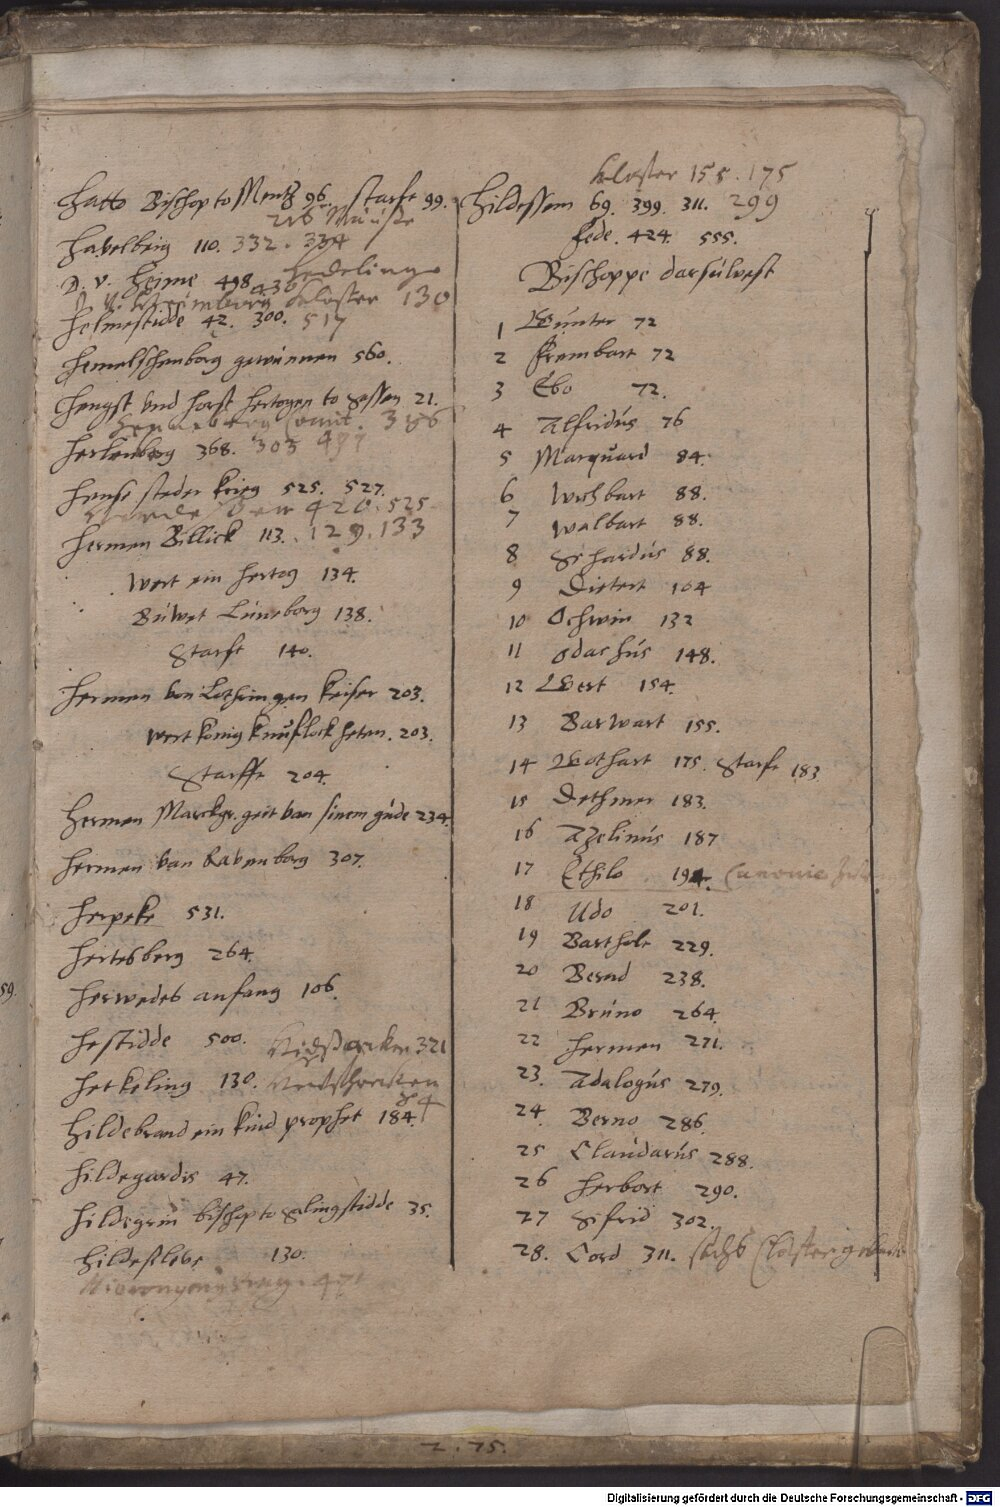 Hatto Bischop to Mentz 96. starft 99.
216 Muuse
Havelberg 110. 332. 334
D. v. Heyme 498
Hedeling
kloster 130
Helmestidde 42. 300. 517
Hemelschenborg gewunnen 560.
Hengst vnd Horst Hertogen to Sassen 21.
Henneberg Comit. 386
Herlenberg 368. 303 497
Hense steder krieg 525. 527.
420. 525
Hermen Billick 113. 129. 133
Wert ein Hertog 134.
Buwet Luneborg 138.
Starft 140.
Hermen van Lothringen keiser 203.
Wert konig knuflock heten. 203.
Starfft 204.
Hermen Marckgr. geit van sinem gude 234.
Hermen van Ravenborg 307.
Herpeke 531.
Hertesberg 264.
Herwedes anfang 106.
Hestidde 500.
321
Hetkeling 130.
84
Hildebrand ein kind prophet 184.
Hildegardis 47.
Hildegrin bischop to Salingstidde 35.
Hildesleve 130.
Hieronymus 471
kloster 155. 175
Hildessem 69. 399. 311. 299
fede. 424. 555.
Bischoppe darsulvest
1 Gunter 72
2 Rembart 72
3 Ebo 72.
4 Alfridus 76
5 Marquard 84.
6 Wichbart 88.
7 Walbart 88.
8 Sehardus 88.
9 Dietert 104
10 Ochwin 132
11 Osdachus 148.
12 Gert 154.
13 Barwart 155.
14 Gothart 175. Starft 183
15 Dethmer 183.
16 Azelinus 187
17 Ethilo 194. Canonic
18 Udo 201.
19 Barthold 229.
20 Bernd 238.
21 Bruno 264
22 Hermen 271.
23. Adalogus 279.
24. Berno 286.
25 Elaudarus 288.
26 Herbort 290.
27 Sifrid 302.
28. Cord 311. sechs Closter gebuwet
59.
2. 75.
Digitalisierung gefördert durch die Deutsche Forschungsgemeinschaft - DFG